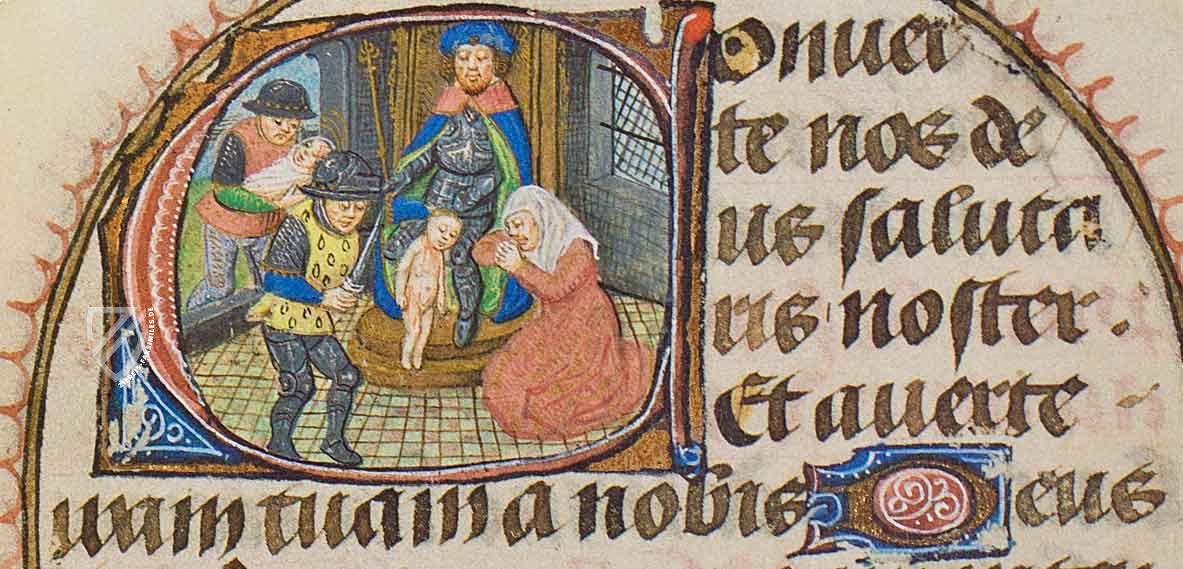 Conuer
te nos de
us saluta
ris noster .
Et auerte
iram tuam a nobis Deus